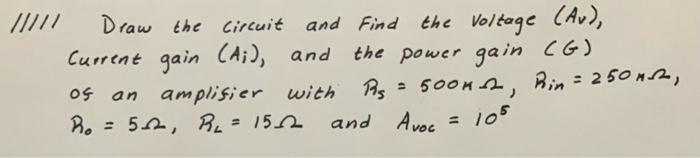 11111 Draw the circuit and Find the Voltage (Av),
Current gain (Ai), and the power gain (G)
of an amplifier with Rs = 500KΩ, Rin = 250KΩ,
Ro = 5Ω, RL = 15Ω and Avoc = 10⁵